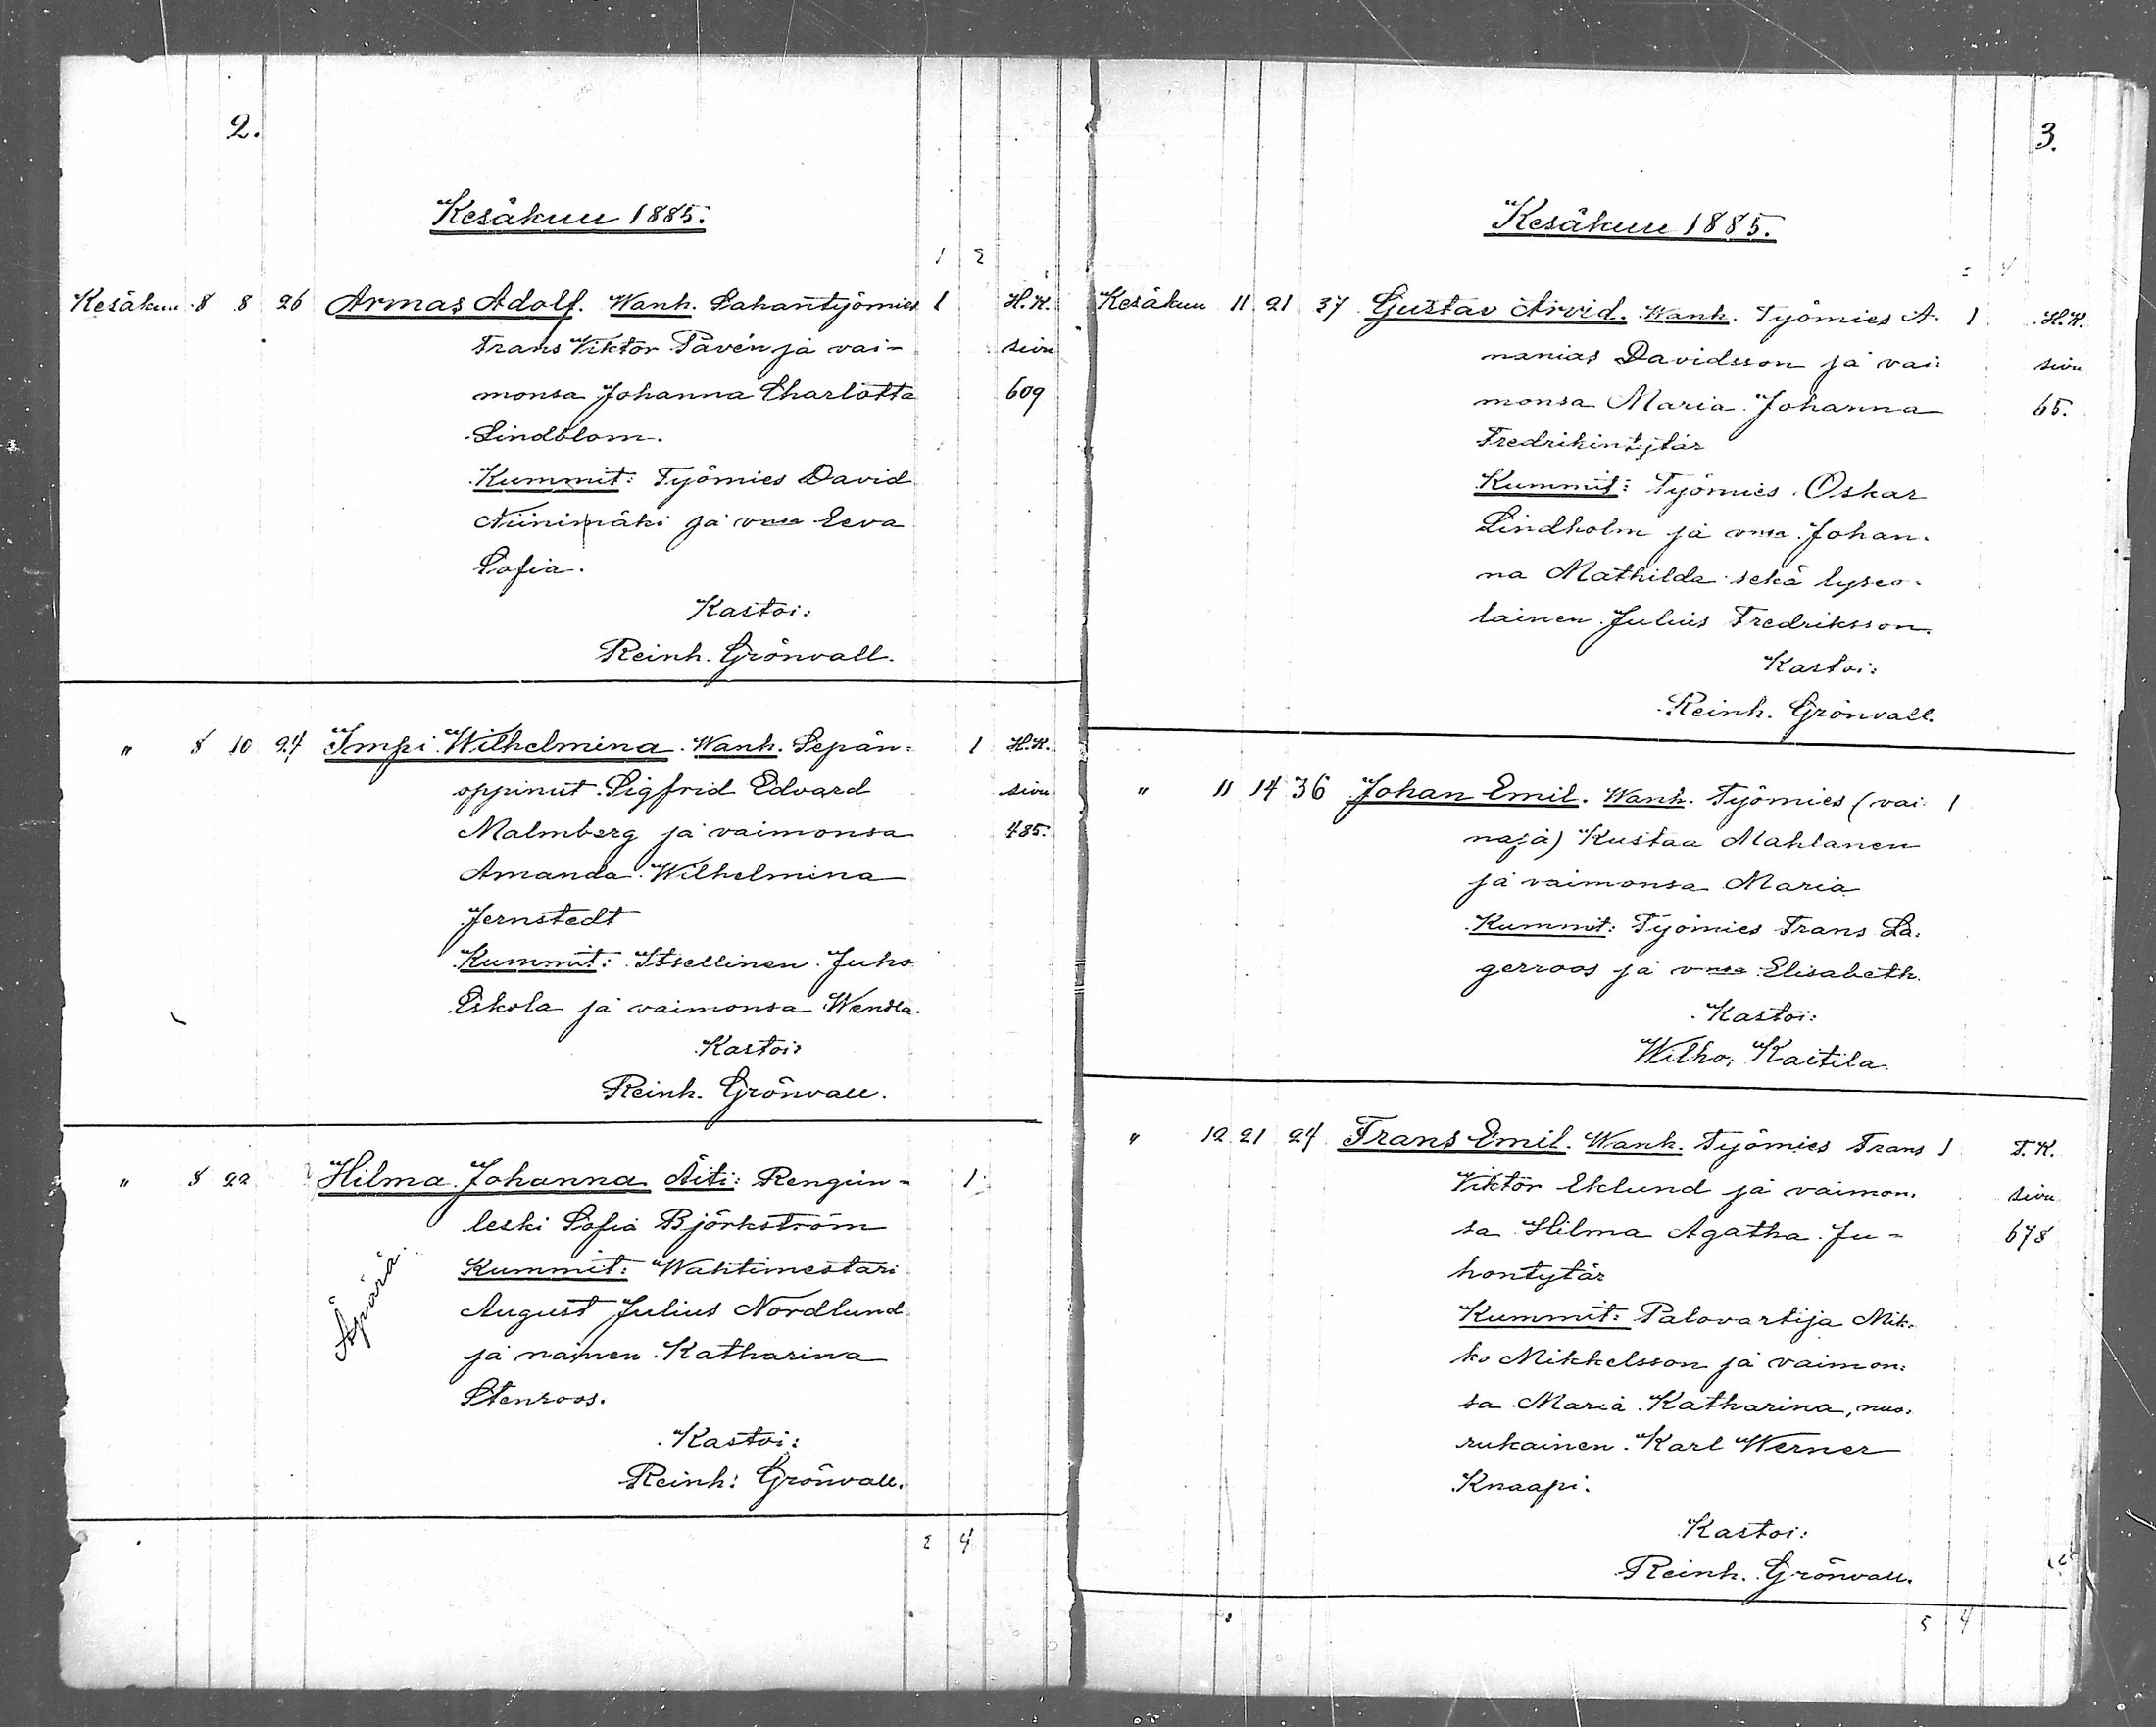 2.
Kesäkuu 1885.
1 2
Kesäkuu 8 8 26 Armas Adolf. Wanh. Sahantyömies 1 H.K.
Frans Viktor Pavén ja vai- sivu
monsa Johanna Charlotta 609
Lindblom.
Kummit: Työmies David
Niinimäki ja vmsa Eeva
Sofia.
Kastoi:
Reinh. Grönvall.
" 8 10 24 Impi Wilhelmina. Wanh. Sepän- 1 H.K.
oppinut Sigfrid Edvard sivu
Malmberg ja vaimonsa 485.
Amanda Wilhelmina
Jernstedt
Kummit: Itsellinen Juho
Eskola ja vaimonsa Wendla.
Kastoi:
Reinh. Grönvall.
" 8 22 Hilma Johanna Äiti: Rengin- 1
leski Sofia Björkström
Äpärä.
Kummit: Wahtimestari
August Julius Nordlund
ja nainen Katharina
Stenroos.
Kastoi:
Reinh: Grönvall.
2 4
3.
Kesäkuu 1885.
2 4
Kesäkuu 11 21 37 Gustav Arvid. Wanh. Työmies A- 1 H.K.
nanias Davidsson ja vai- sivu
monsa Maria Johanna 65.
Fredrikintytär
Kummit: Työmies Oskar
Lindholm ja vmsa Johan-
na Mathilda sekä lyseo-
lainen Julius Fredriksson.
Kastoi:
Reinh. Grönvall.
" 11 14 36 Johan Emil. Wanh. Työmies (vai- 1
naja) Kustaa Mahlanen
ja vaimonsa Maria
Kummit: Työmies Frans La-
gerroos ja vmsa Elisabeth.
Kastoi:
Wilho. Kaitila.
" 12 21 24 Frans Emil. Wanh. Työmies Frans 1 T.K.
Viktor Eklund ja vaimon- sivu
sa Hilma Agatha Ju- 678
hontytär
Kummit: Palovartija Mik-
ko Mikkelsson ja vaimon-
sa Maria Katharina, nuo-
rukainen Karl Werner
Knaapi.
Kastoi:
Reinh. Grönvall.
5 4